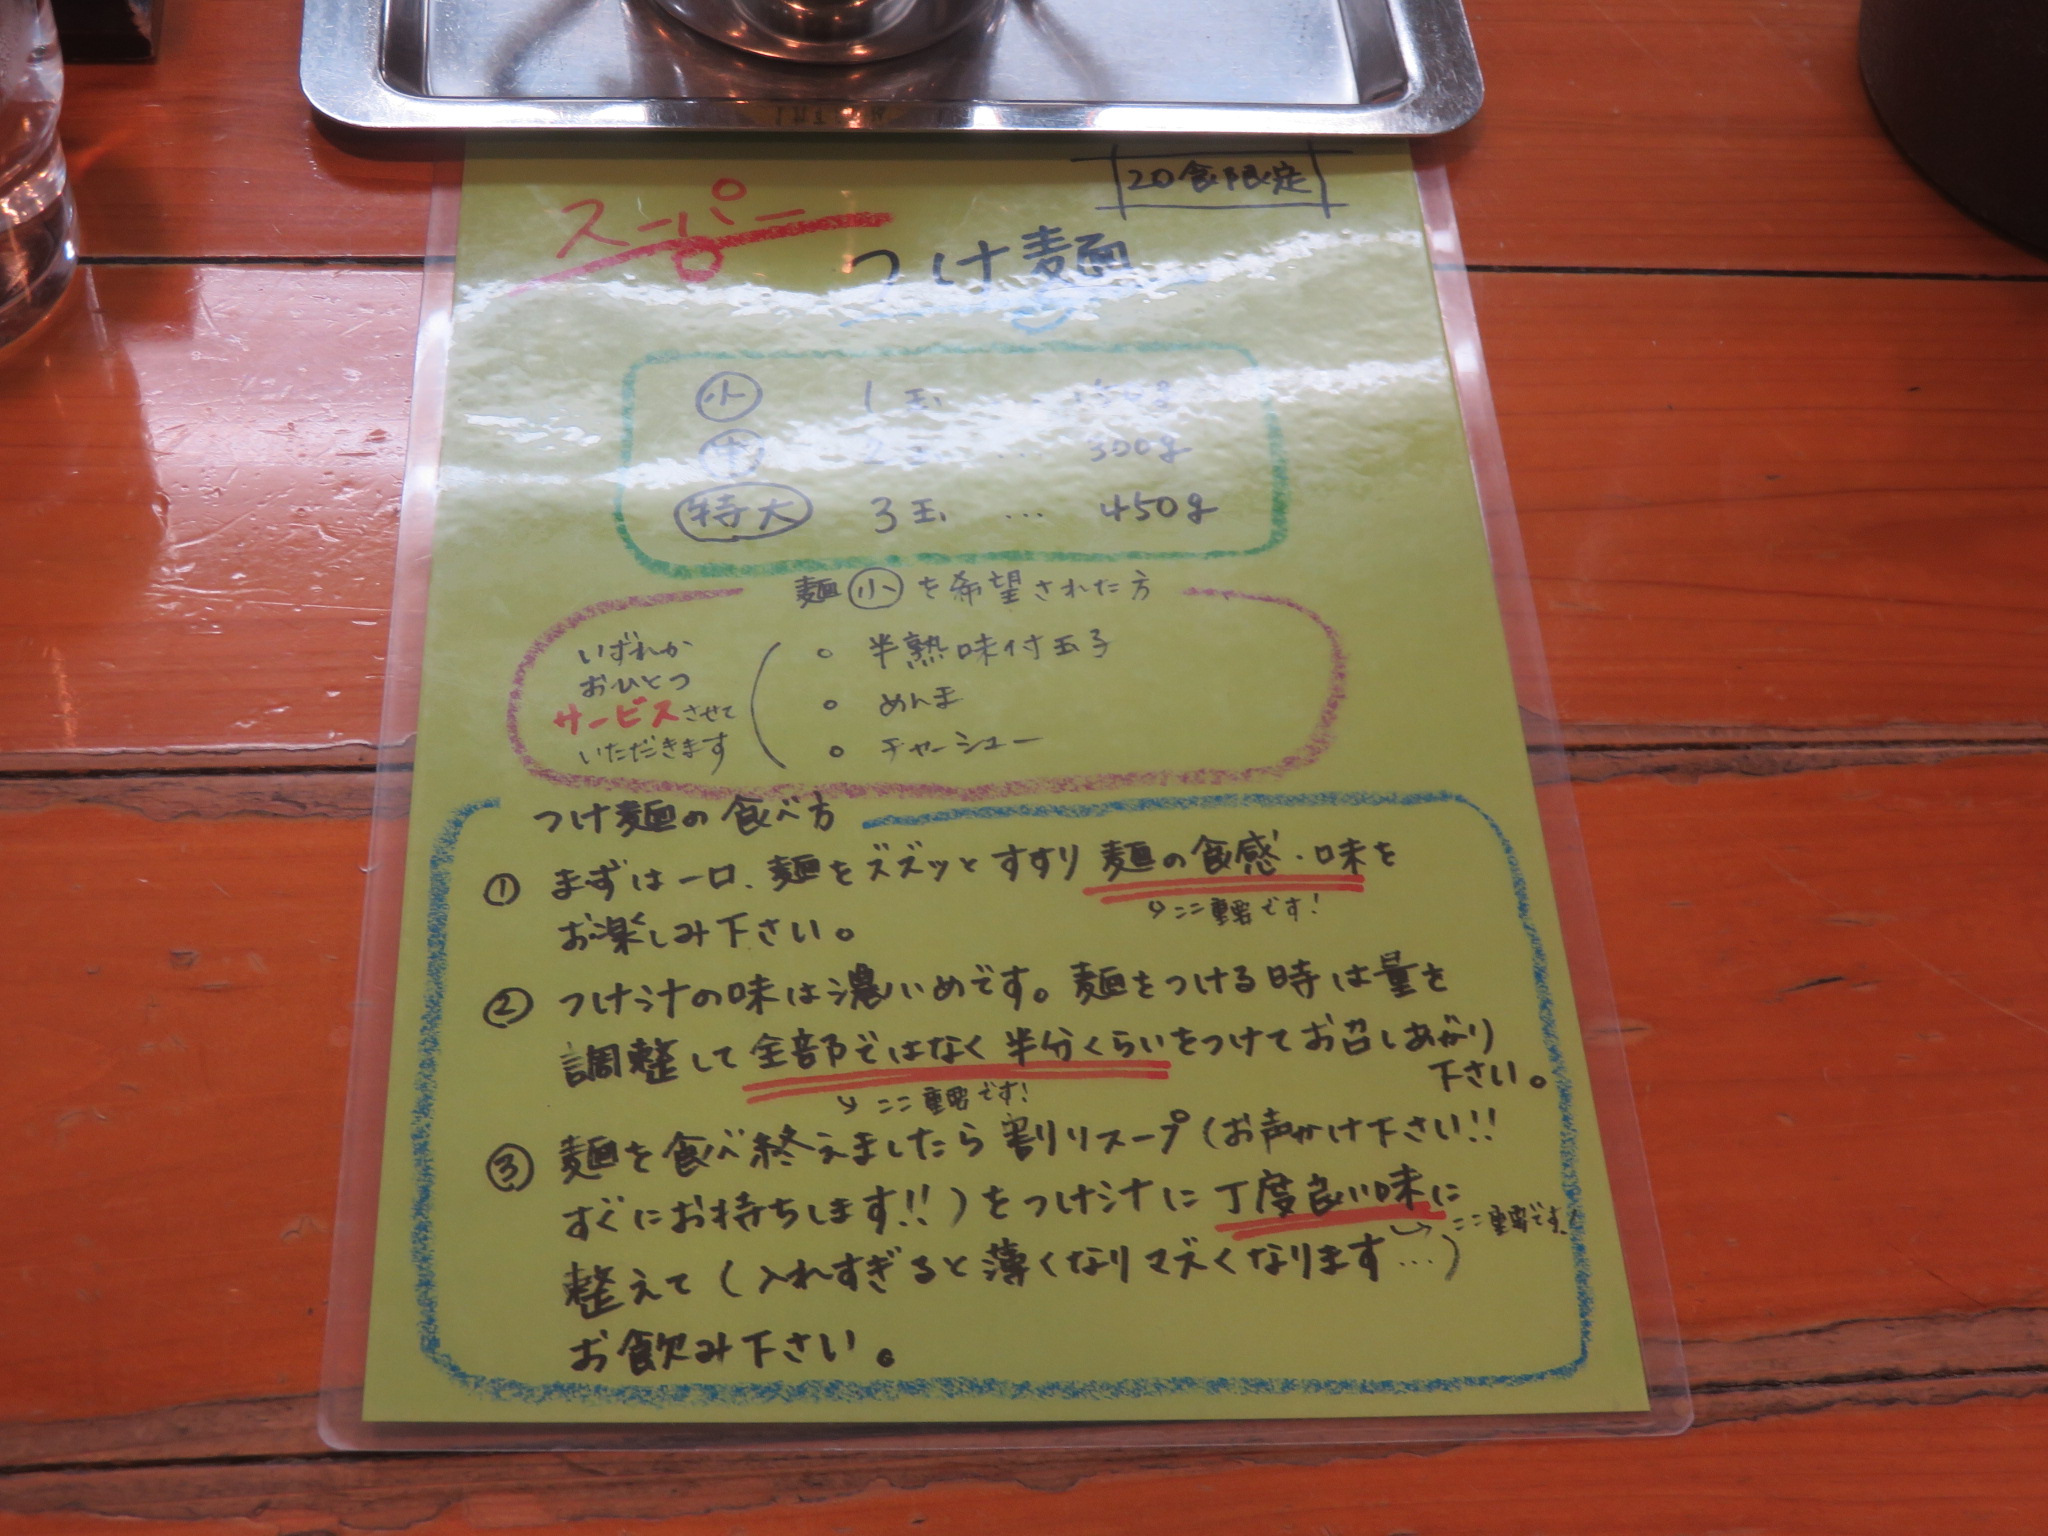 20食限定
スーパー
つけ麺
小 1玉 … 150g
2玉 … 300g
特大 3玉 … 450g
麺小を希望された方
いずれか
おひとつ
サービスさせて
いただきます
○ 半熟味付玉子
○ めんま
○ チャーシュー
つけ麺の食べ方
① まずは一口、麺をズズッとすすり麺の食感・味を
ここ重要です!
お楽しみ下さい。
② つけ汁の味は濃いめです。麺をつける時は量を
調整して全部ではなく半分くらいをつけてお召しあがり
下さい。
ここ重要です!
③ 麺を食べ終えましたら割りスープ(お声かけ下さい!!
すぐにお持ちします!!)をつけ汁に丁度良い味に
ここ重要です
整えて(入れすぎると薄くなりマズくなります…)
お飲み下さい。